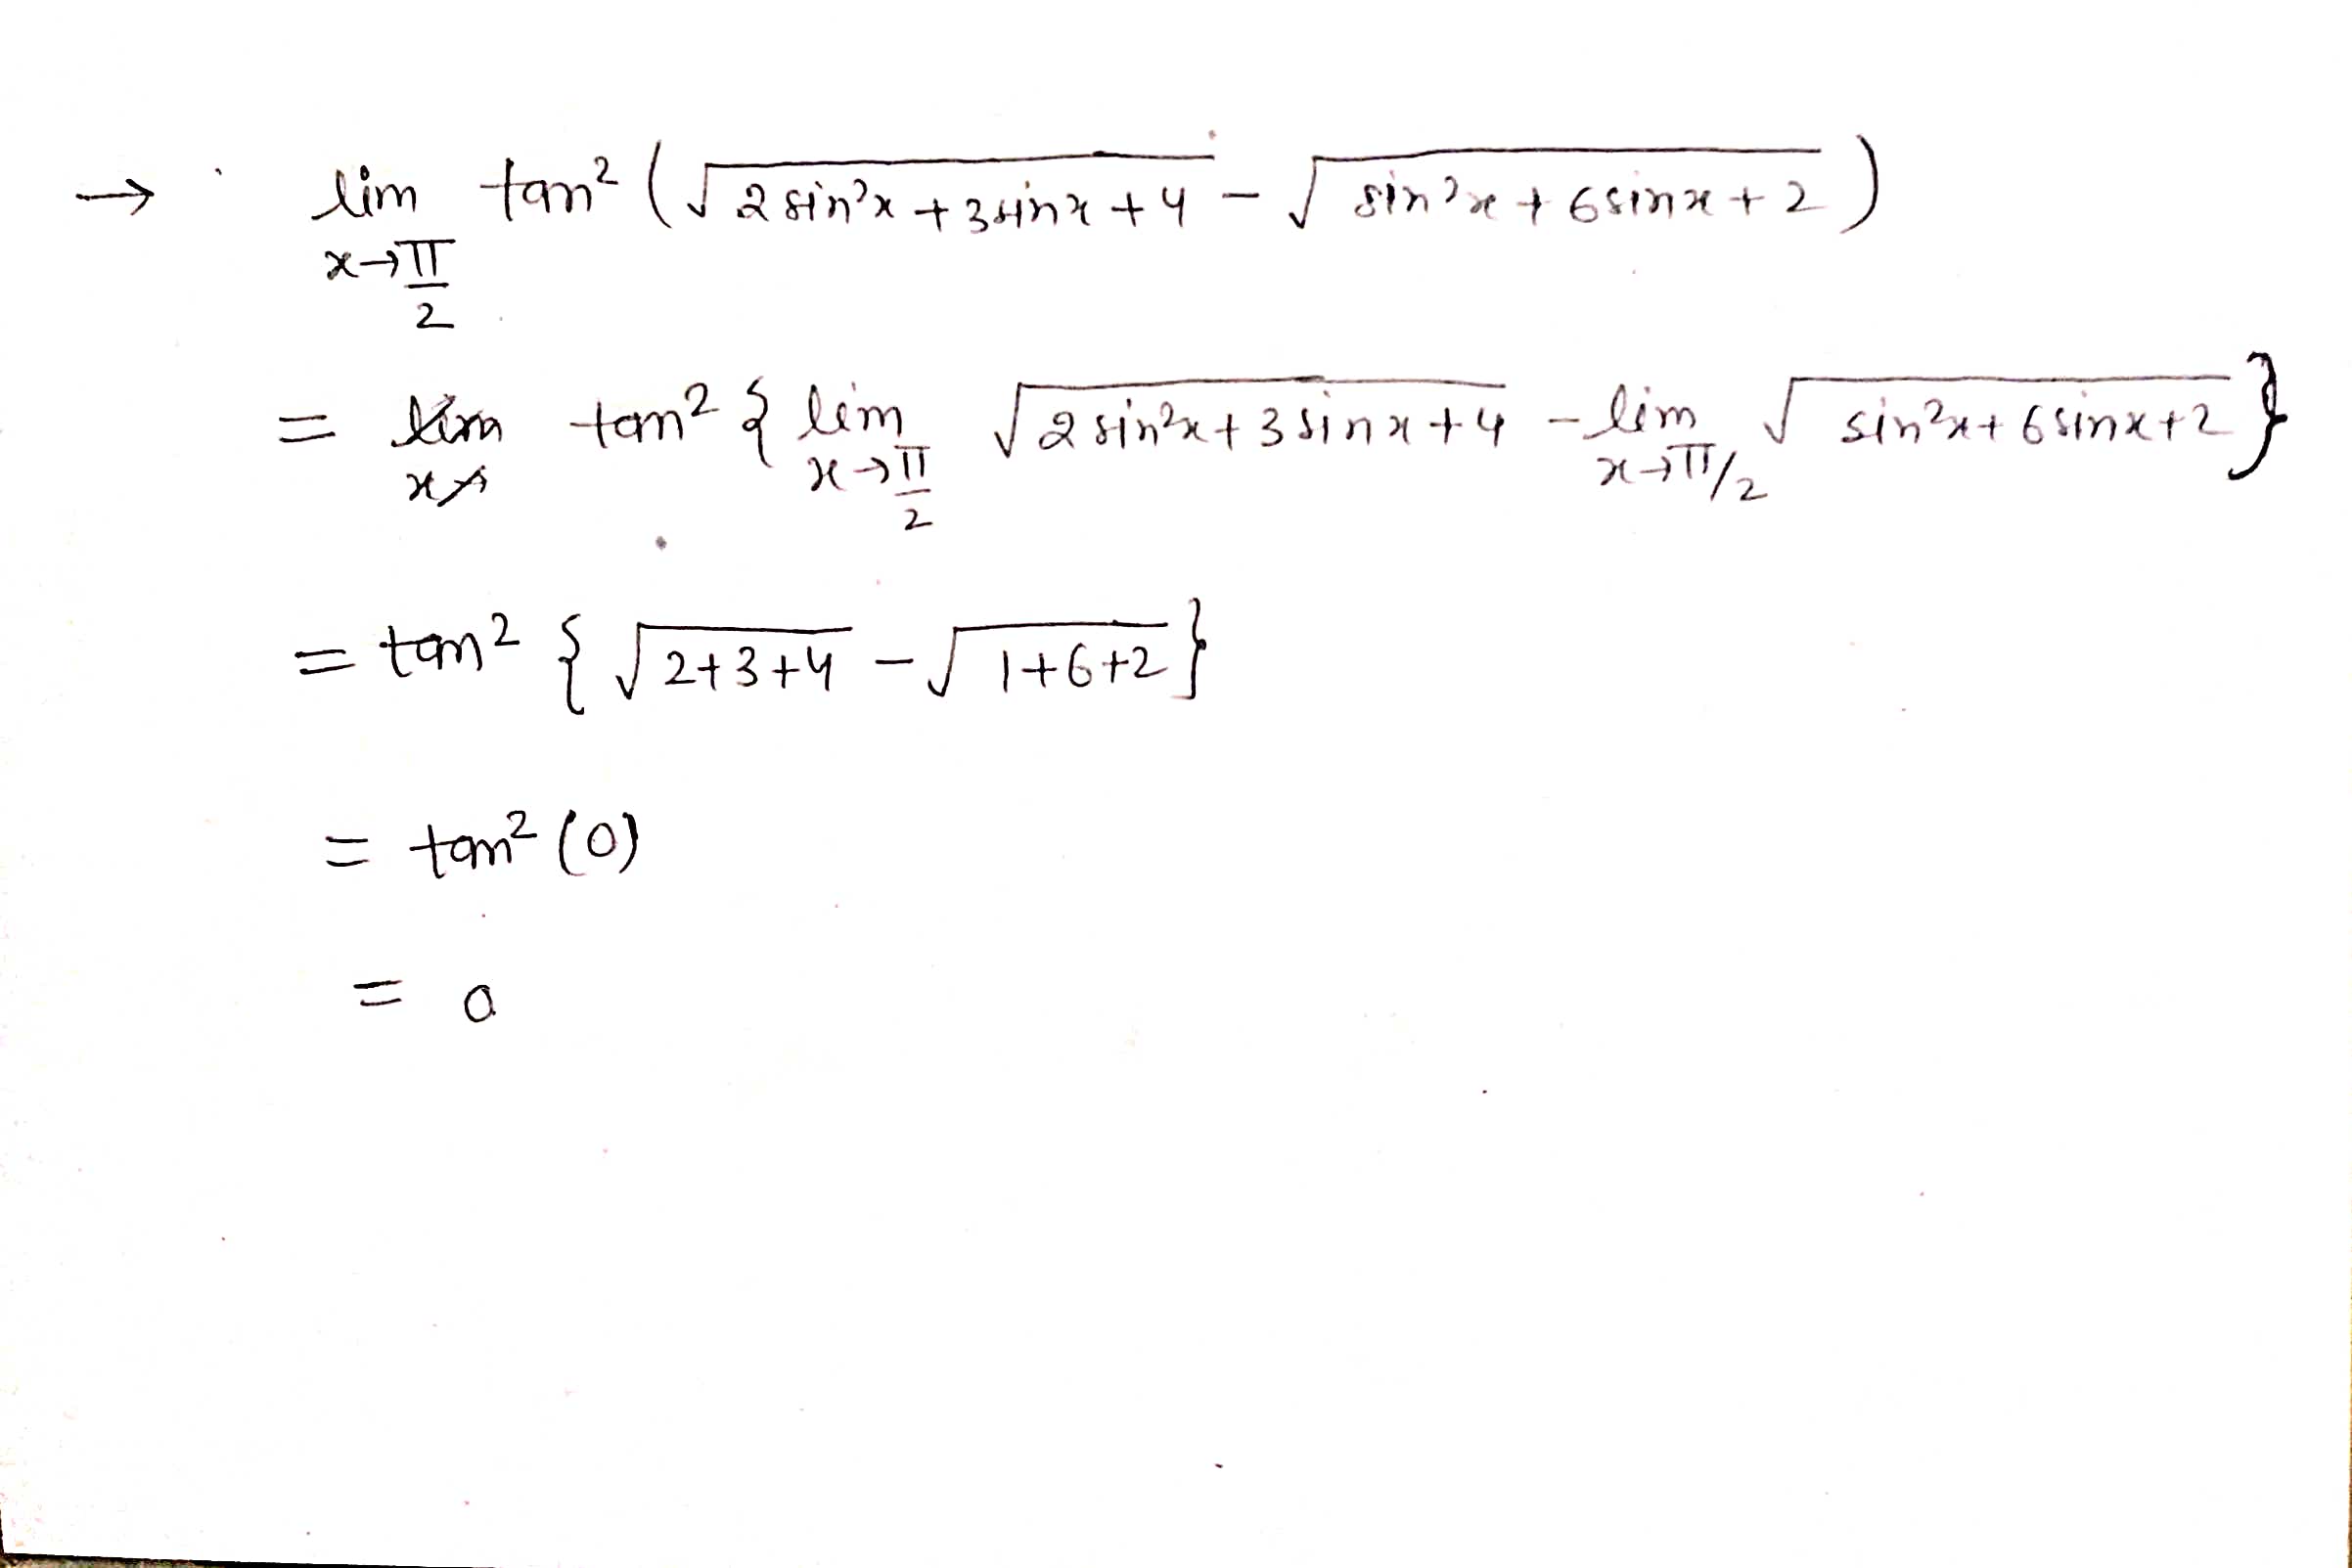 → lim x→π/2 tan² (√(2 sin²x + 3 sinx + 4) - √(sin²x + 6 sinx + 2))
= tan² { lim x→π/2 √(2 sin²x + 3 sinx + 4) - lim x→π/2 √(sin²x + 6 sinx + 2) }
= tan² { √(2+3+4) - √(1+6+2) }
= tan² (0)
= 0